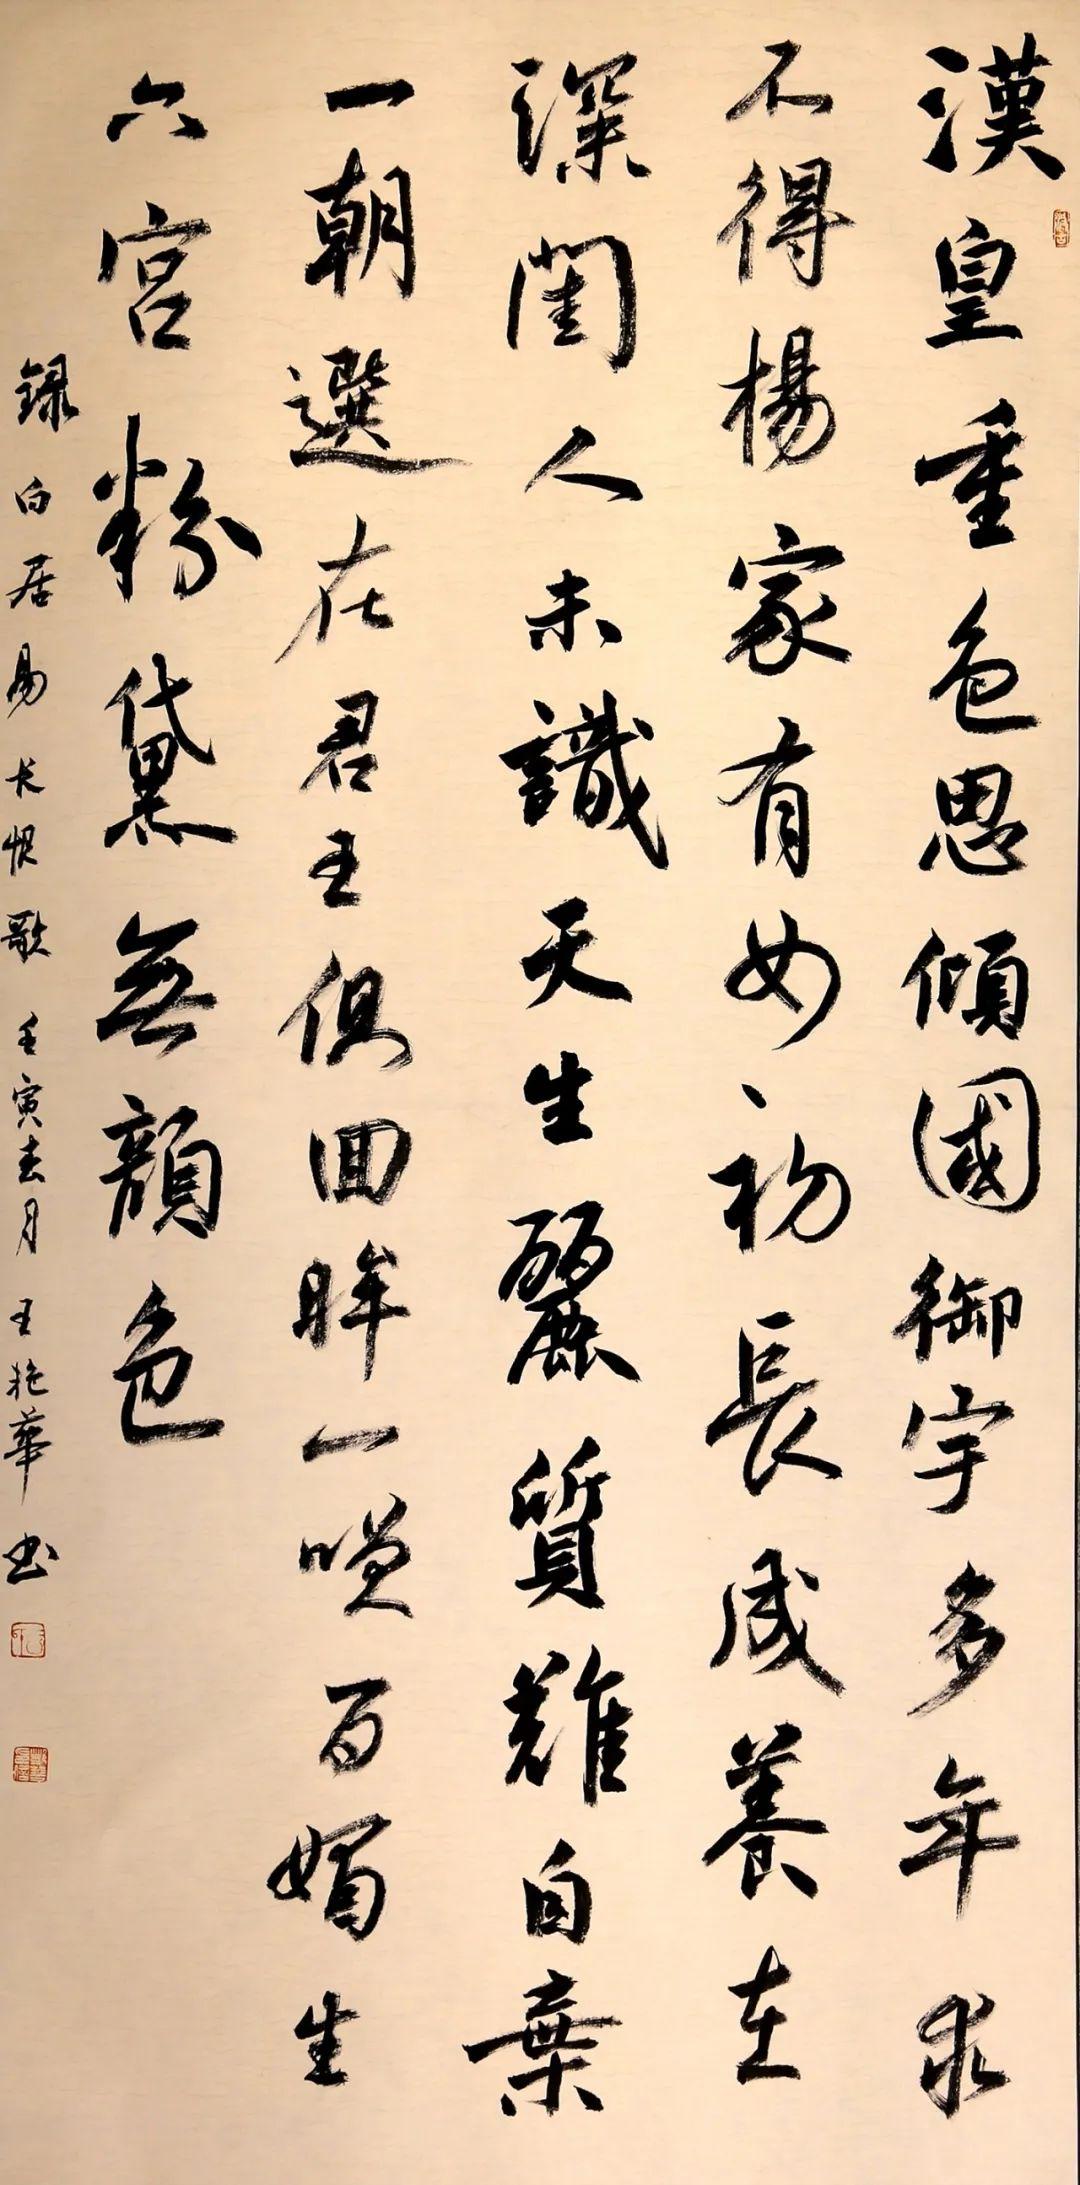 漢皇重色思傾國御宇多年求
不得楊家有女初長成養在
深閨人未識天生麗質難自棄
一朝選在君王側回眸一咲百媚生
六宮粉黛無顔色
録白居易长恨歌 壬寅春月 王艳華书